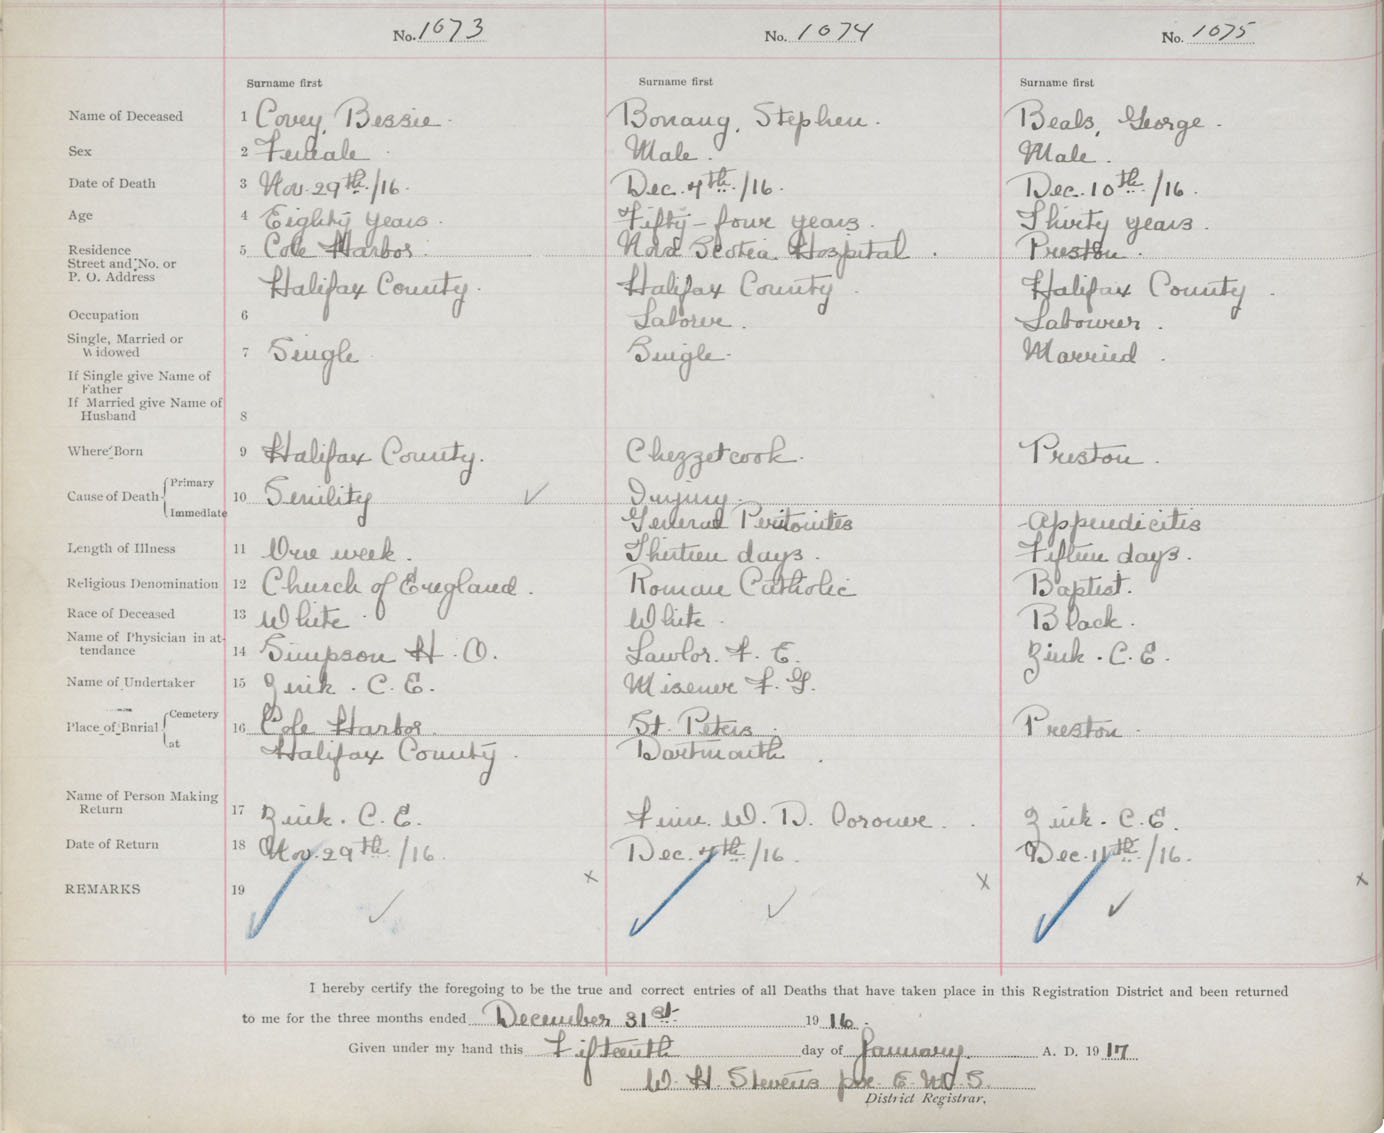 No. 1073 No. 1074 No. 1075
Surname first Surname first Surname first
Name of Deceased 1 Covey, Bessie. Bonang, Stephen. Beals, George.
Sex 2 Female Male. Male.
Date of Death 3 Nov. 29th/16. Dec. 7th/16. Dec. 10th/16.
Age 4 Eighty years. Fifty-four years. Thirty years.
Residence 5 Cole Harbor. Nova Scotia Hospital. Preston.
Street and No. or
P. O. Address Halifax County. Halifax County. Halifax County.
Occupation 6 Laborer. Labourer.
Single, Married or
Widowed 7 Single Single. Married.
If Single give Name of
Father
If Married give Name of
Husband 8
Where Born 9 Halifax County. Chezzetcook. Preston.
Cause of Death Primary 10 Senility Injury.
Immediate General Peritonites Appendicitis
Length of Illness 11 One week. Thirteen days. Fifteen days.
Religious Denomination 12 Church of England. Roman Catholic Baptist.
Race of Deceased 13 White. White. Black.
Name of Physician in at-
tendance 14 Simpson H. O. Lawlor. F. E. Zink. C. E.
Name of Undertaker 15 Zink. C. E. Misener F. G.
Place of Burial Cemetery 16 Cole Harbor. St. Peters. Preston.
at Halifax County. Dartmouth.
Name of Person Making
Return 17 Zink. C. E. Finn. W. D. Coroner. Zink. C. E.
Date of Return 18 Nov. 29th/16. Dec. 7th/16. Dec. 11th/16.
REMARKS 19 x x x
I hereby certify the foregoing to be the true and correct entries of all Deaths that have taken place in this Registration District and been returned
to me for the three months ended December 31st 1916.
Given under my hand this Fifteenth day of January. A. D. 1917
W. H. Stevens per E. M. S.
District Registrar.